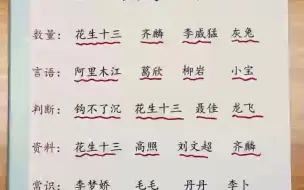 数量: 花生十三 齐麟 李威猛 灰兔
言语: 阿里木江 葛欣 柳岩 小宝
判断: 钩不了沉 花生十三 聂佳 龙飞
资料: 花生十三 高照 刘文超 齐麟
常识: 李梦娇 毛毛 丹丹 李卜